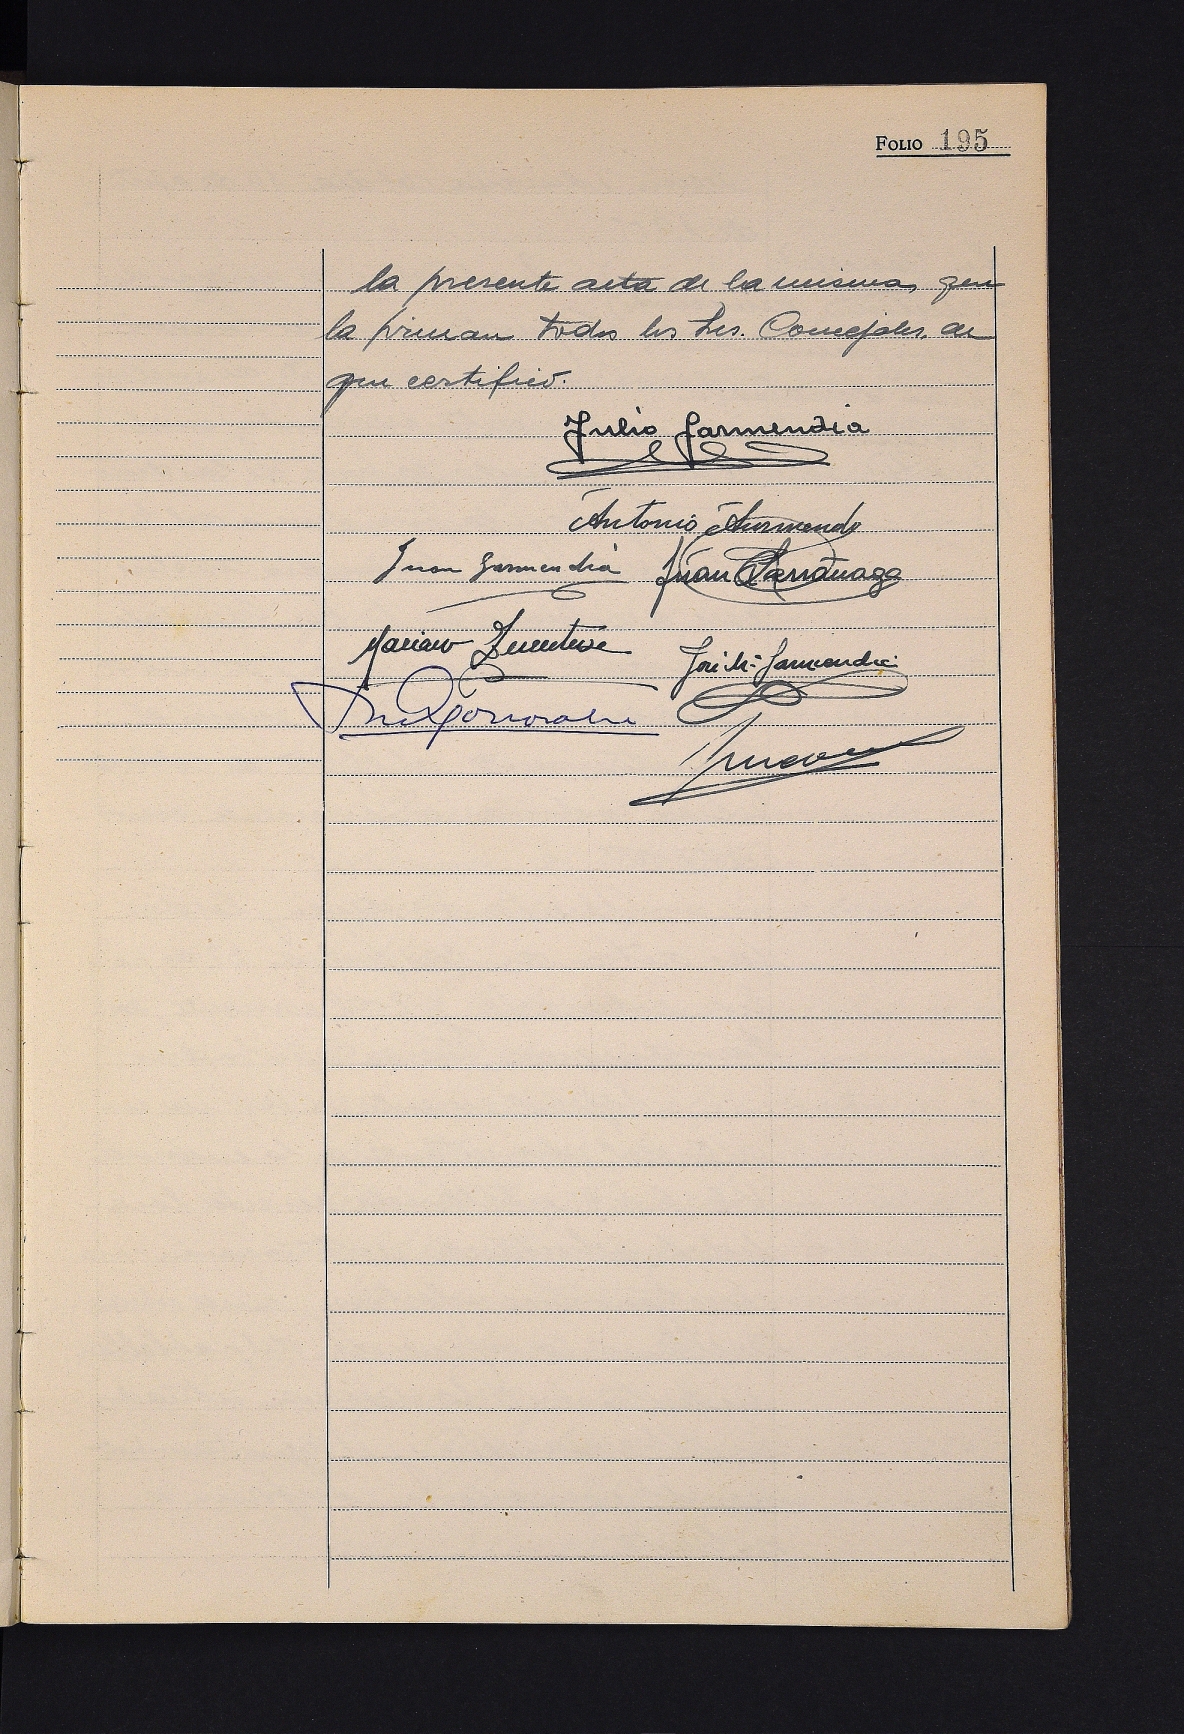 FOLIO 195
la presente acta de la misma, que
la firman todos los Sres. Concejales, de
que certifico.
Julio Garmendia
Antonio
Juan Garmendia Juan Larrañaga
Mariano
José Mª Garmendia